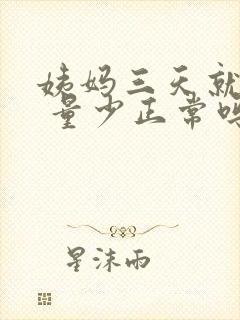 姨妈三天就
量少正常吗
星沫雨